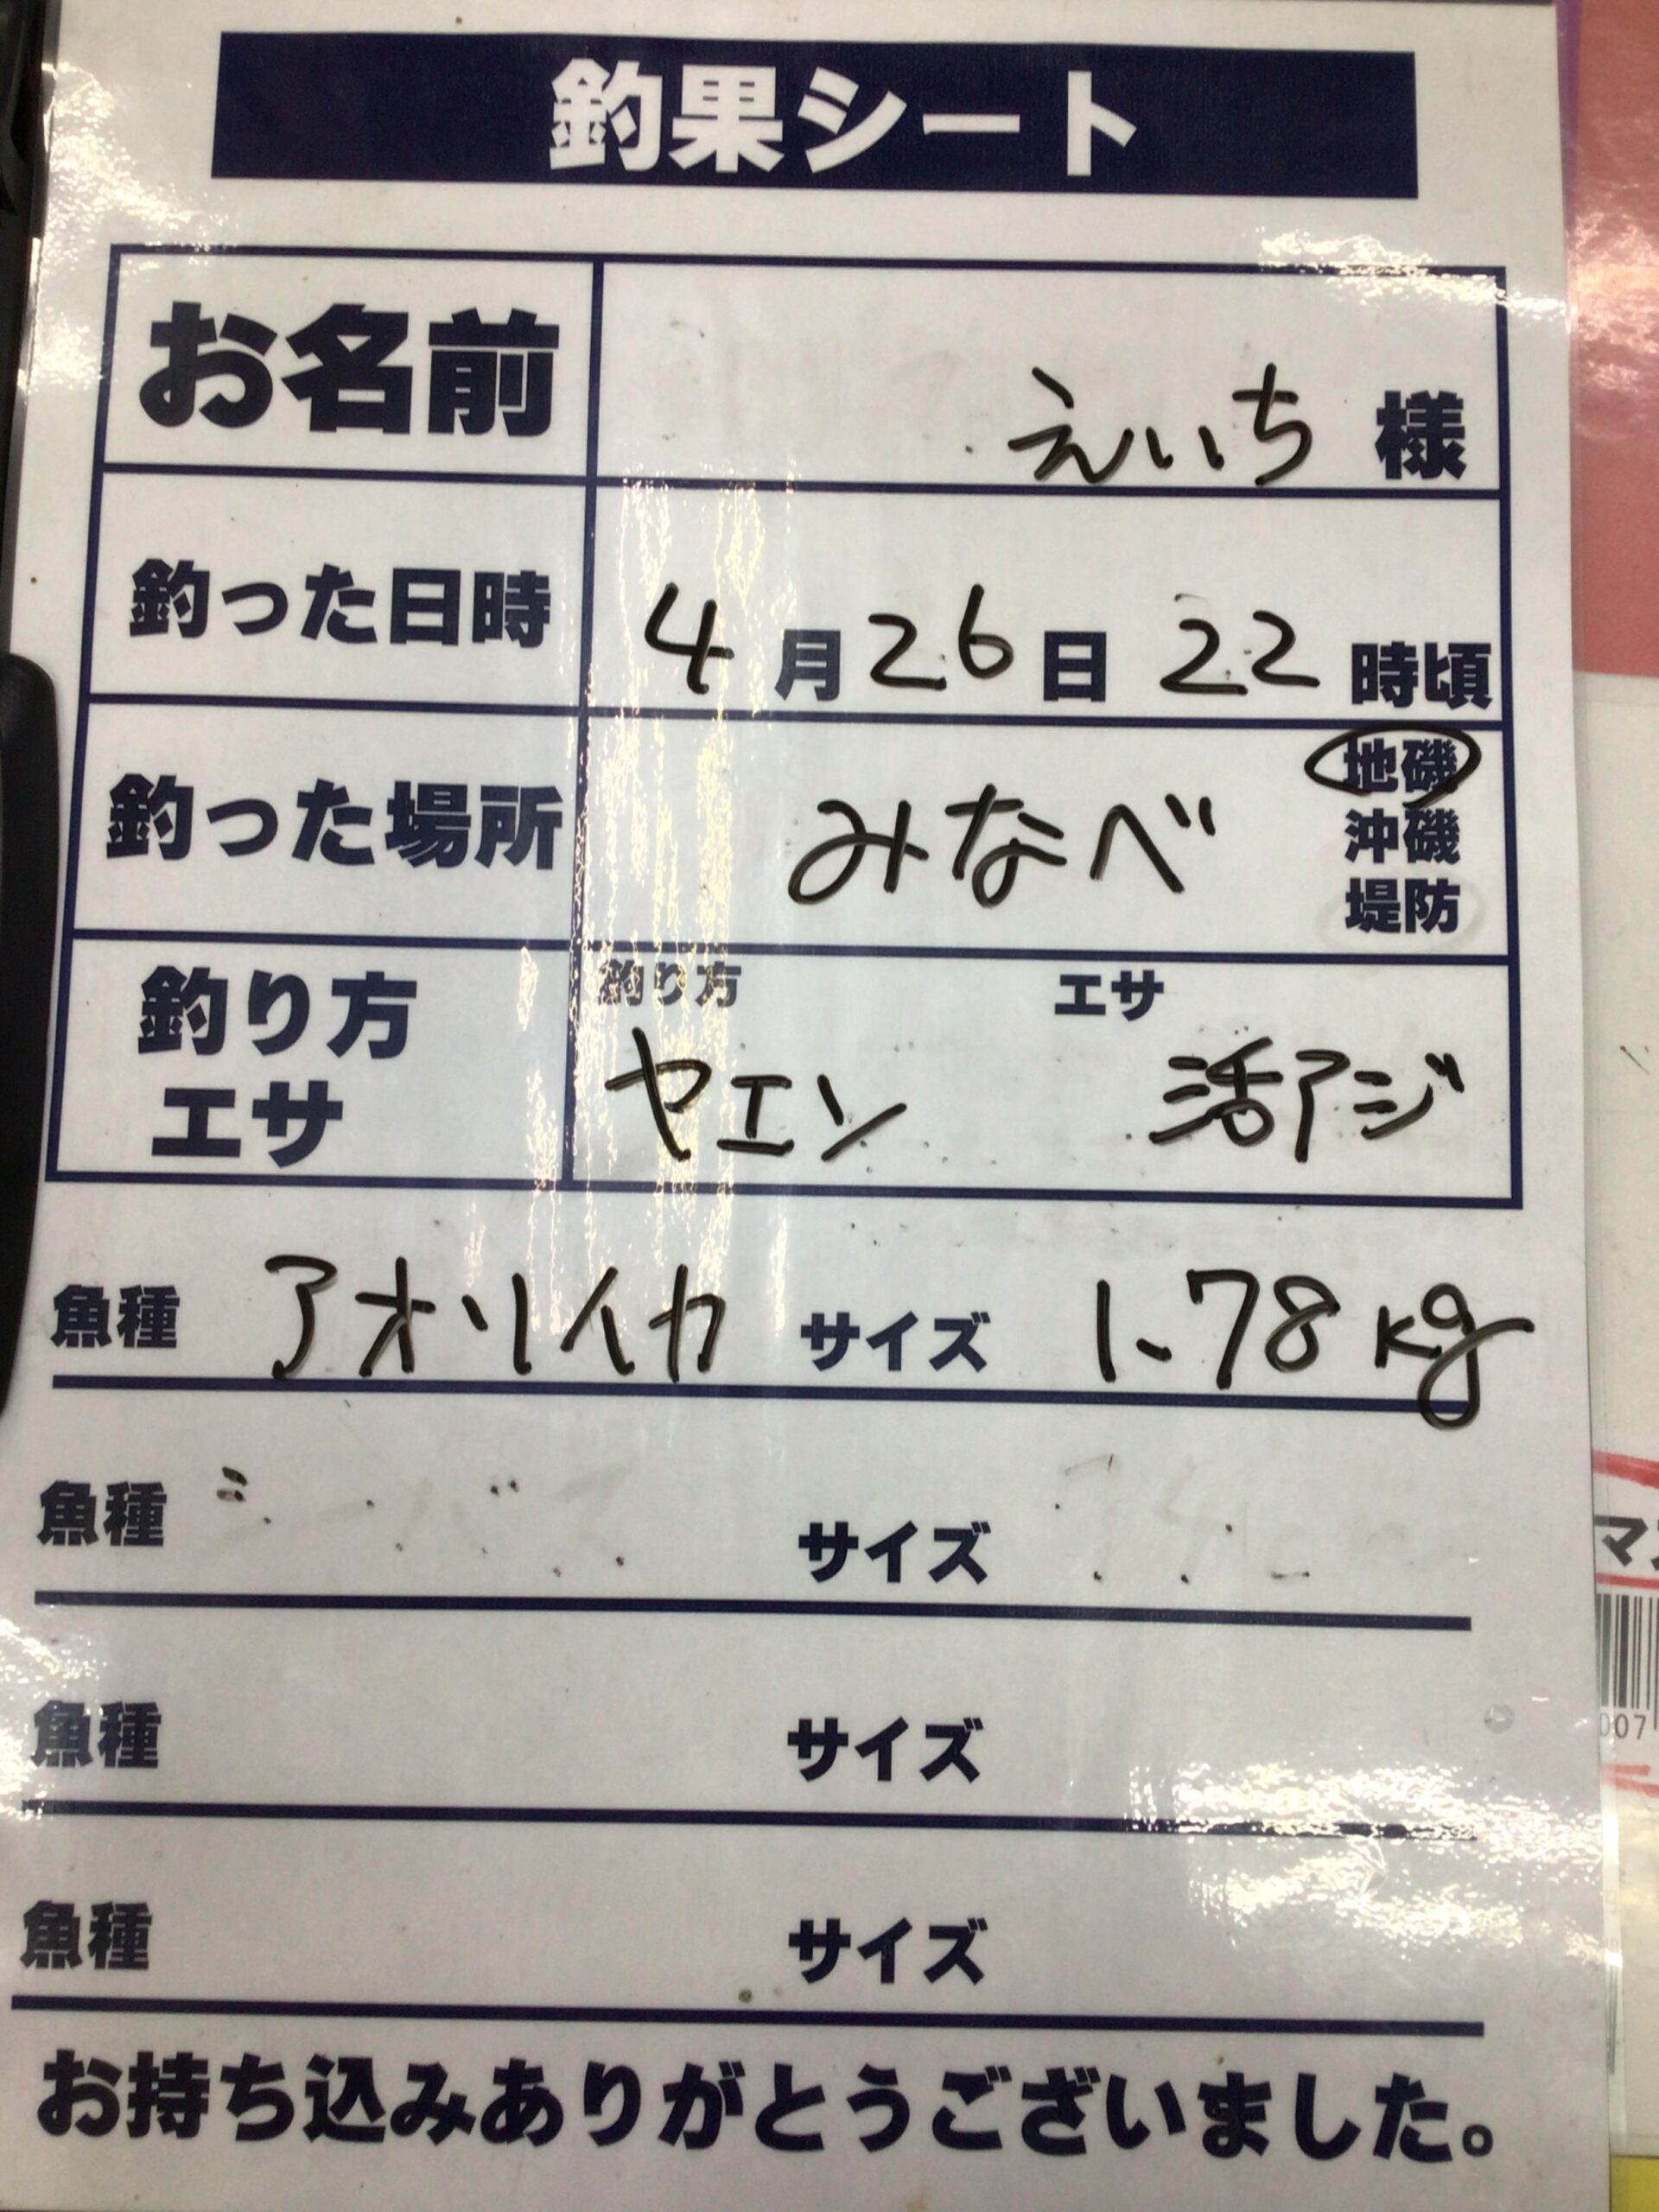 釣果シート
お名前 えいち 様
釣った日時 4月26日 22時頃
釣った場所 みなべ 地磯
沖磯
堤防
釣り方 エサ
釣り方 エサ
ヤエン 活アジ
魚種 アオリイカ サイズ 1.78kg
魚種 サイズ
魚種 サイズ
魚種 サイズ
お持ち込みありがとうございました。
007